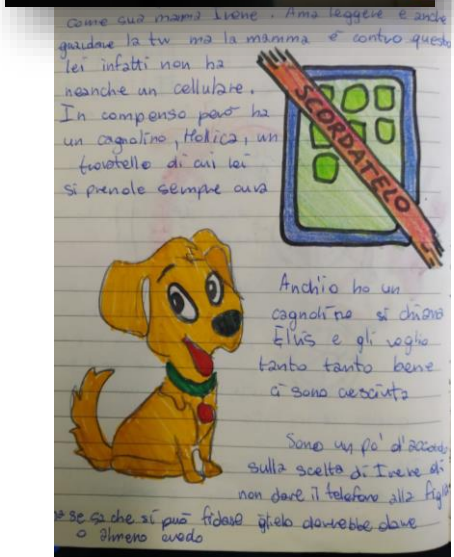 come sua mama Irene. Ama leggere e anche
guardare la tv ma la mamma è contro questo
lei infatti non ha
neanche un cellulare.
In compenso però ha
un cagnolino, Molica, un
trovatello di cui lei
si prende sempre cura
SCORDATELO
Anchio ho un
cagnolino si chiama
Elvis e gli voglio
tanto tanto bene
ci sono cresciuta
Sono un po' d'accordo
sulla scelta di Irene di
non dare il telefono alla figlia
ma se sa che si può fidare glielo dovrebbe dare
o almeno credo